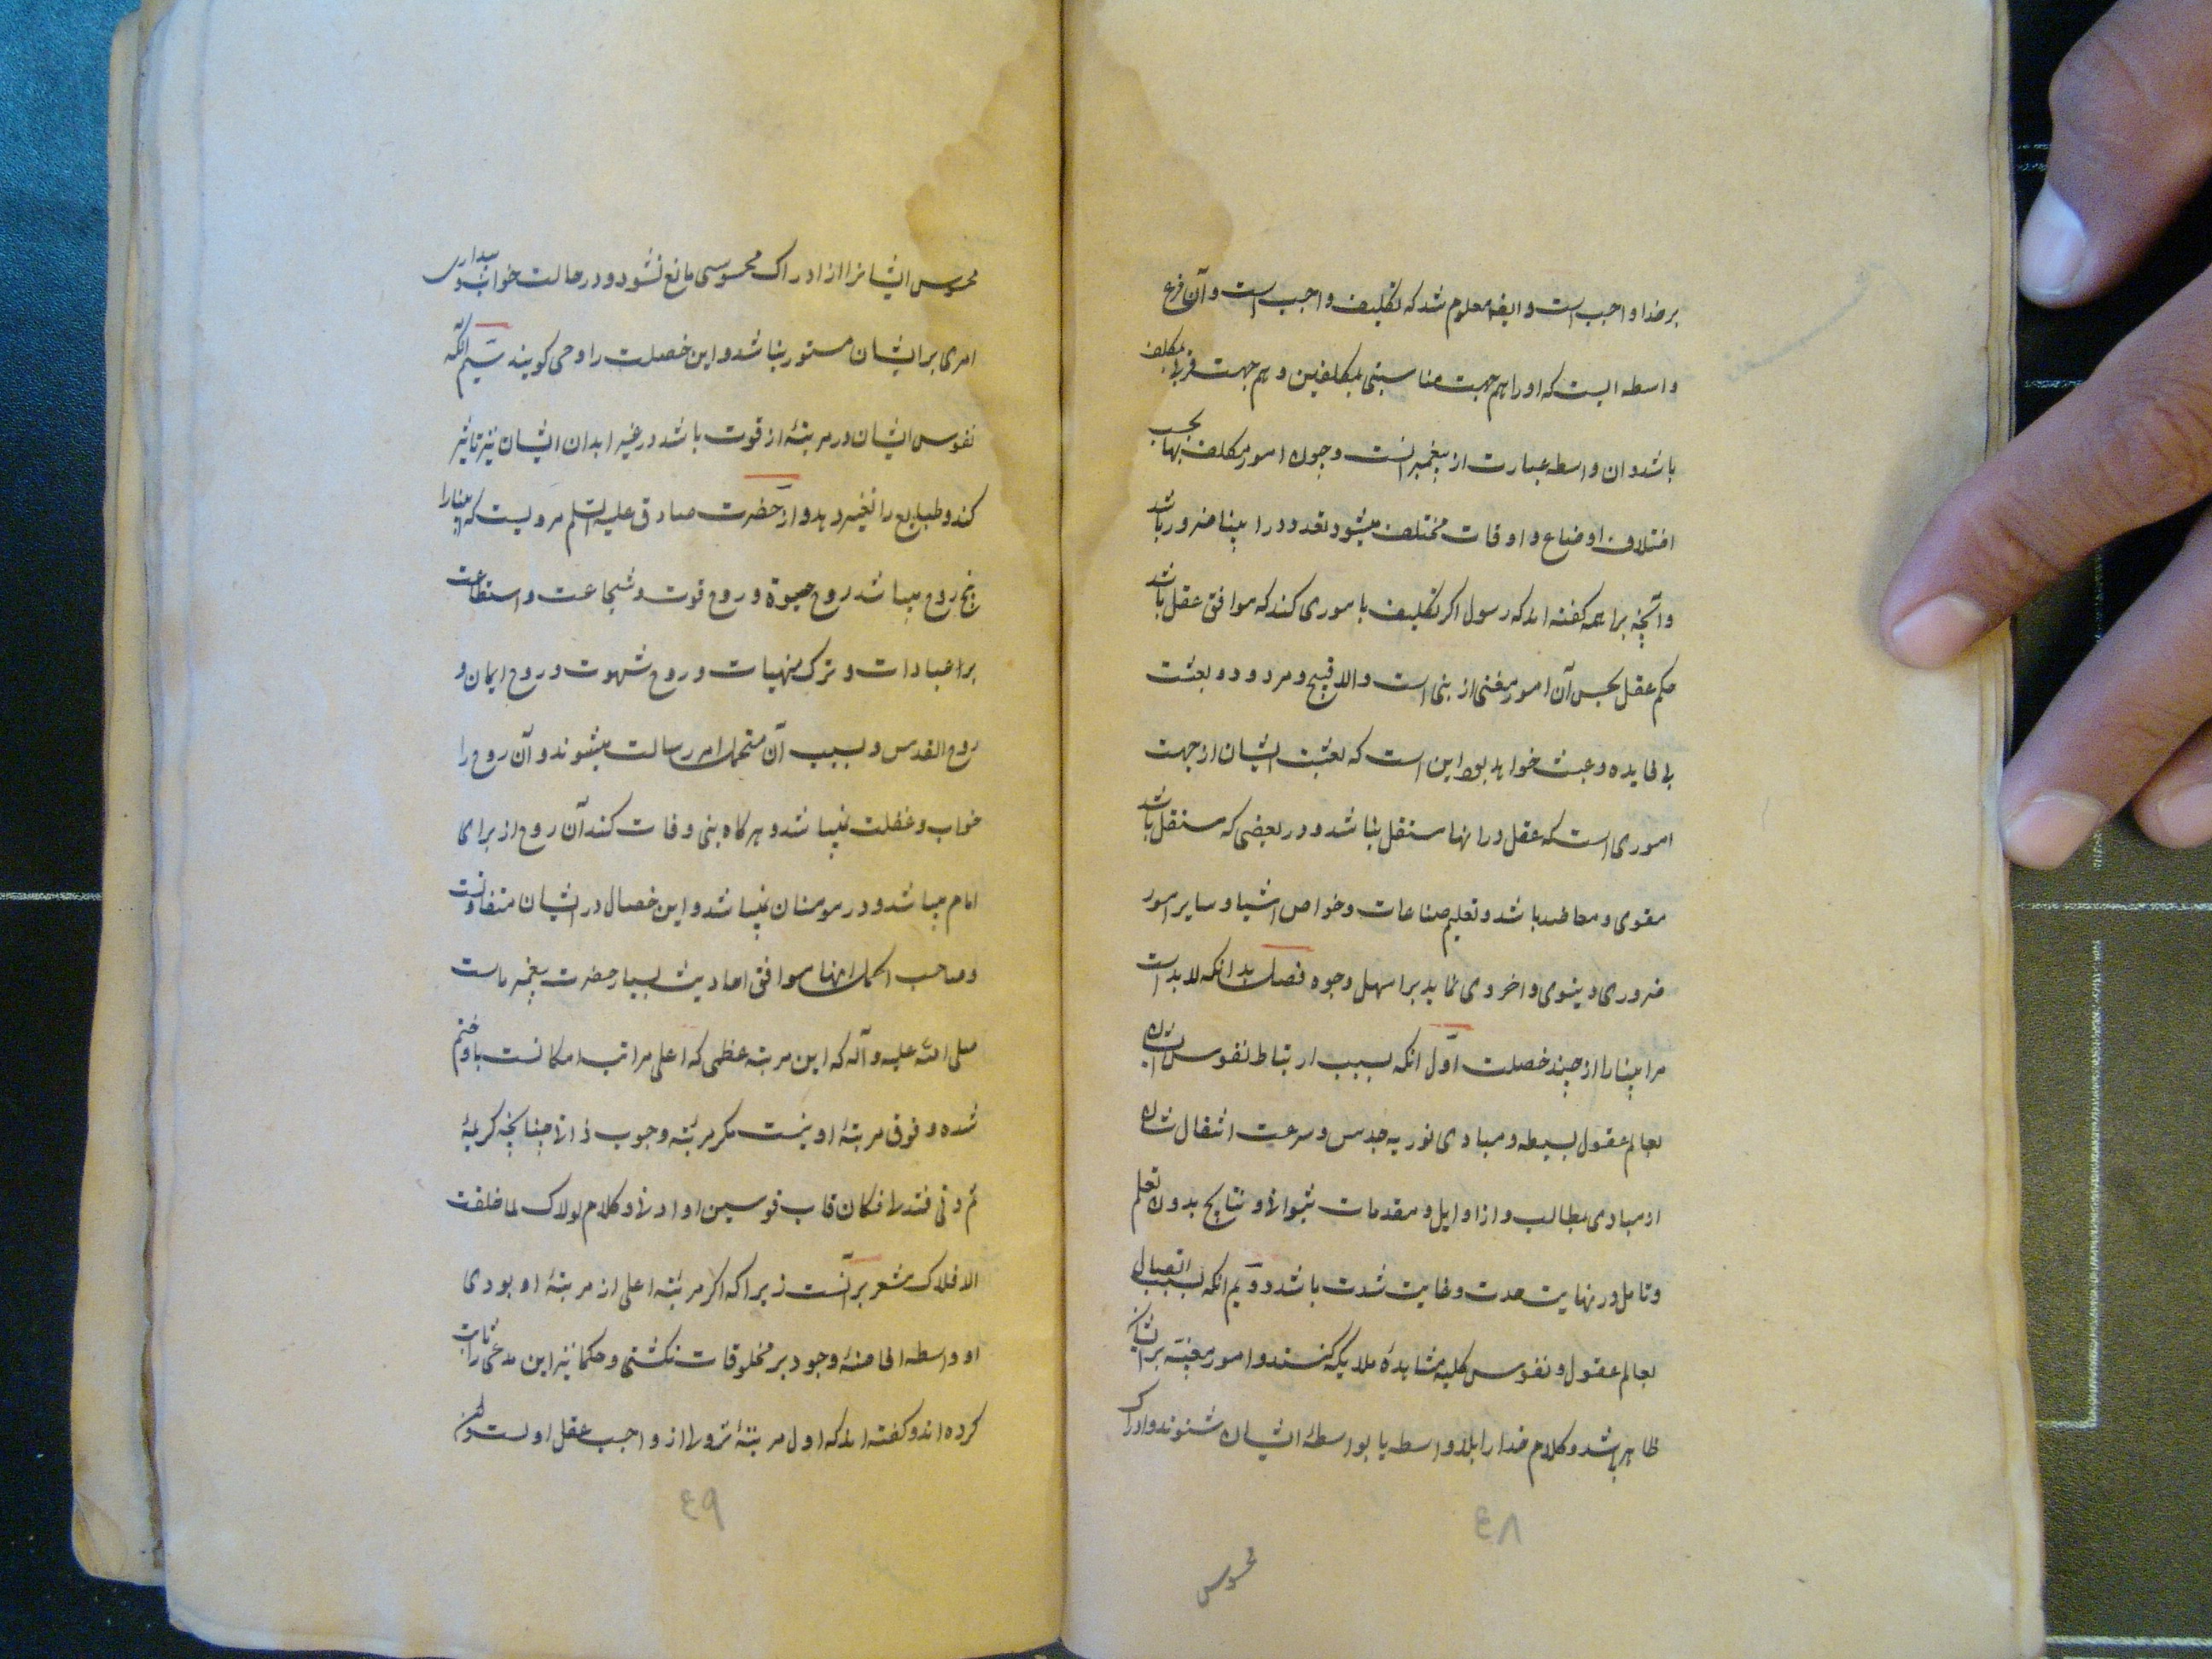 بر خدا واجب است و ایضا معلوم شد که تکلیف واجب است و آن فرع
واسطه ایست که او را هم جهت مناسبتی بمکلفین و هم جهت قرب بمکلف
باشد و ان واسطه عبارت از پیغمبرانست و چون امور مکلف بها بحسب
اختلاف اوضاع و اوقات مختلف میشود تعدد در انبیا ضرور باشد
و آنچه براهمه کفته اند که رسول اکر تکلیف باموری کند که موافق عقل باشد
حکم عقل بحسن آن امور مغنی از نبی است و الا قبیح و مردود و بعثت
بی فایده و عبث خواهد بود این است که بعثت ایشان از جهت
اموری است که عقل در انها مستقل نباشد و در بعضی که مستقل باشد
مقوی و معاضد باشد و تعلیم صناعات و خواص اشیا و سایر امور
ضروری دینوی و اخروی نماید بر اسهل وجوه فصل بدانکه لا بد است
مر انبیا را از چند خصلت اول انکه بسبب ارتباط نفوس ایشان
بعالم عقول بسیطه و مبادی نوریه حدس و سرعت انتقال شان
از مبادی بمطالب و از اوایل و مقدمات بثوانی و نتایج بدون تعلم
و تامل در نهایت حدت و غایت شدت باشد دویم انکه بسبب اتصال
بعالم عقول و نفوس کلیه مشاهدهٔ ملایکه کنند و امور مغیبه بر ایشان
ظاهر باشد و کلام خدا را بلا واسطه یا بواسطهٔ ایشان شنوند و ادراک
۴۸
محسوس
محسوس ایشانرا از ادراک محسوسی مانع نشود و در حالت خواب و بیداری
امری بر ایشان مستور نباشد و این خصلت را وحی کویند سیم آنکه
نفوس ایشان در مرتبهٔ از قوت باشد در غیر ابدان ایشان نیز تاثیر
کند و طبایع را تغییر دهد و از حضرت صادق علیه السلم مرویست که انبیا را
پنج روح میباشد روح حیوة و روح قوت و شجاعت و استطاعت
بر عبادات و ترک منهیات و روح شهوت و روح ایمان و
روح القدس و بسبب آن متحمل امر رسالت میشوند و آن روح را
خواب و غفلت نمیباشد و هرکاه نبی وفات کند آن روح از برای
امام میباشد و در مومنان نمیباشد و این خصال در ایشان متفاوتست
و صاحب اکمل انها موافق احادیث بسیار حضرت پیغمبر ماست
صلی الله علیه و آله که این مرتبه عظمی که اعلی مراتب امکانست باو ختم
شده و فوق مرتبهٔ او نیست مکر مرتبه وجوب ذاتی چنانچه کریمهٔ
ثم دنی فتدلی فکان قاب قوسین او ادنی و کلام لولاک لما خلقت
الافلاک مشعر بر آنست زیرا که اکر مرتبه اعلی از مرتبهٔ او بودی
او واسطه افاضهٔ وجود بر مخلوقات نکشتی و حکما نیز این مدعی را اثبات
کرده اند و کفته اند که اول مرتبهٔ نزولی از واجب عقل اولست و این
۴۹